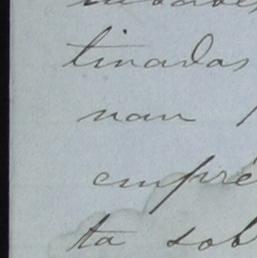 tinadas
nan
empré
ta sob